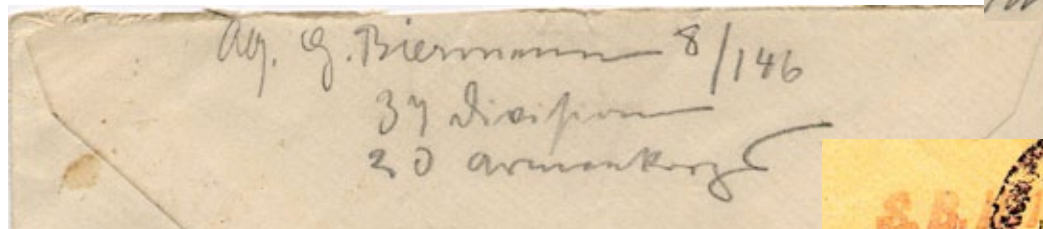 G. Biermann 8/146
37 Division
20 Armeekorps
S.B.